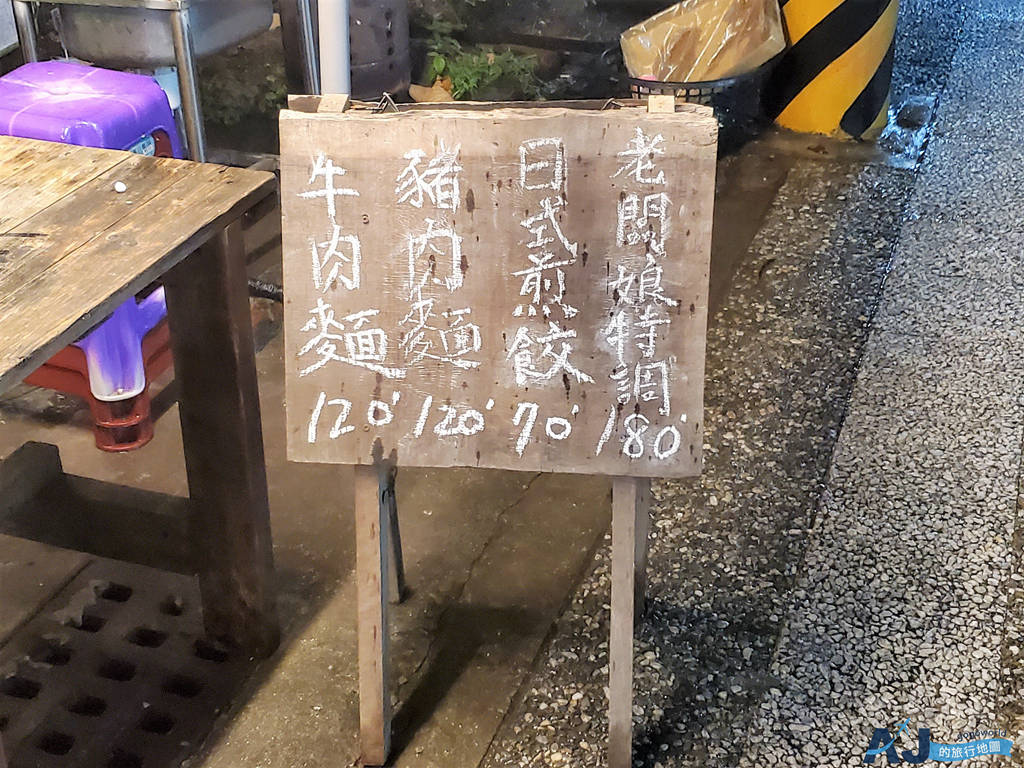 老闆娘特調 180
日式煎餃 70
豬肉麵 120
牛肉麵 120
AJ
的旅行地圖